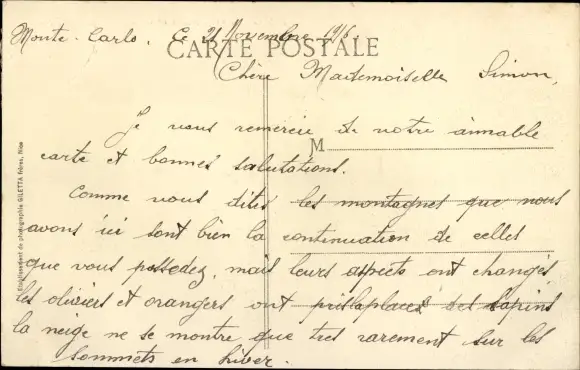 Monte-Carlo. Le 21 Novembre 1916.
CARTE POSTALE
Chère Mademoiselle Simon,
Je vous remercie de votre aimable
M
carte et bonnes salutations.
Comme vous dites les montagnes que nous
avons ici sont bien la continuation de celles
que vous possedez, mais leurs aspects ont changés
les oliviers et orangers ont pris la place des sapins
la neige ne se montre que tres rarement sur les
sommets en hiver.
Etablissement de photographie GILETTA frères, Nice